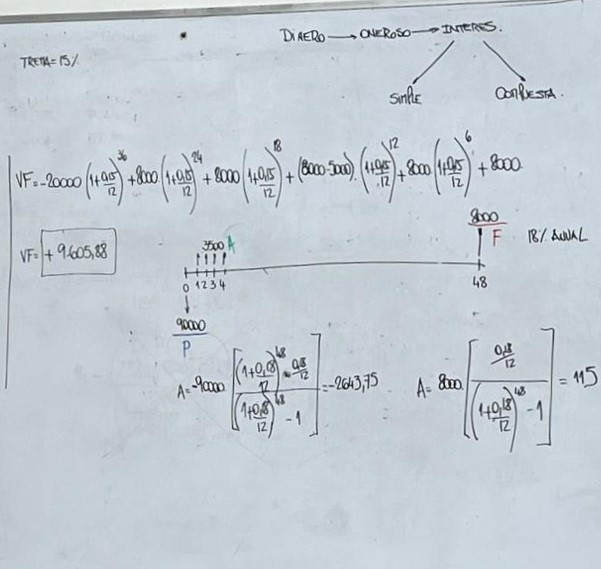 DINERO → ONEROSO → INTERES.
TREMA = 15%
SIMPLE COMPUESTA.
VF = -20000 (1+0,15/12)^36 + 8000 (1+0,15/12)^24 + 8000 (1+0,15/12)^18 + (8000-5000) · (1+0,15/12)^12 + 8000 (1+0,15/12)^6 + 8000
VF = + 9.605,88
3500 A
8000
F 18% ANUAL
0 1 2 3 4 48
90000
P
A = -90000 [(1+0,18/12)^48 · 0,18/12 / (1+0,18/12)^48 - 1] = -2643,75
A = 8000 [0,18/12 / (1+0,18/12)^48 - 1] = 115